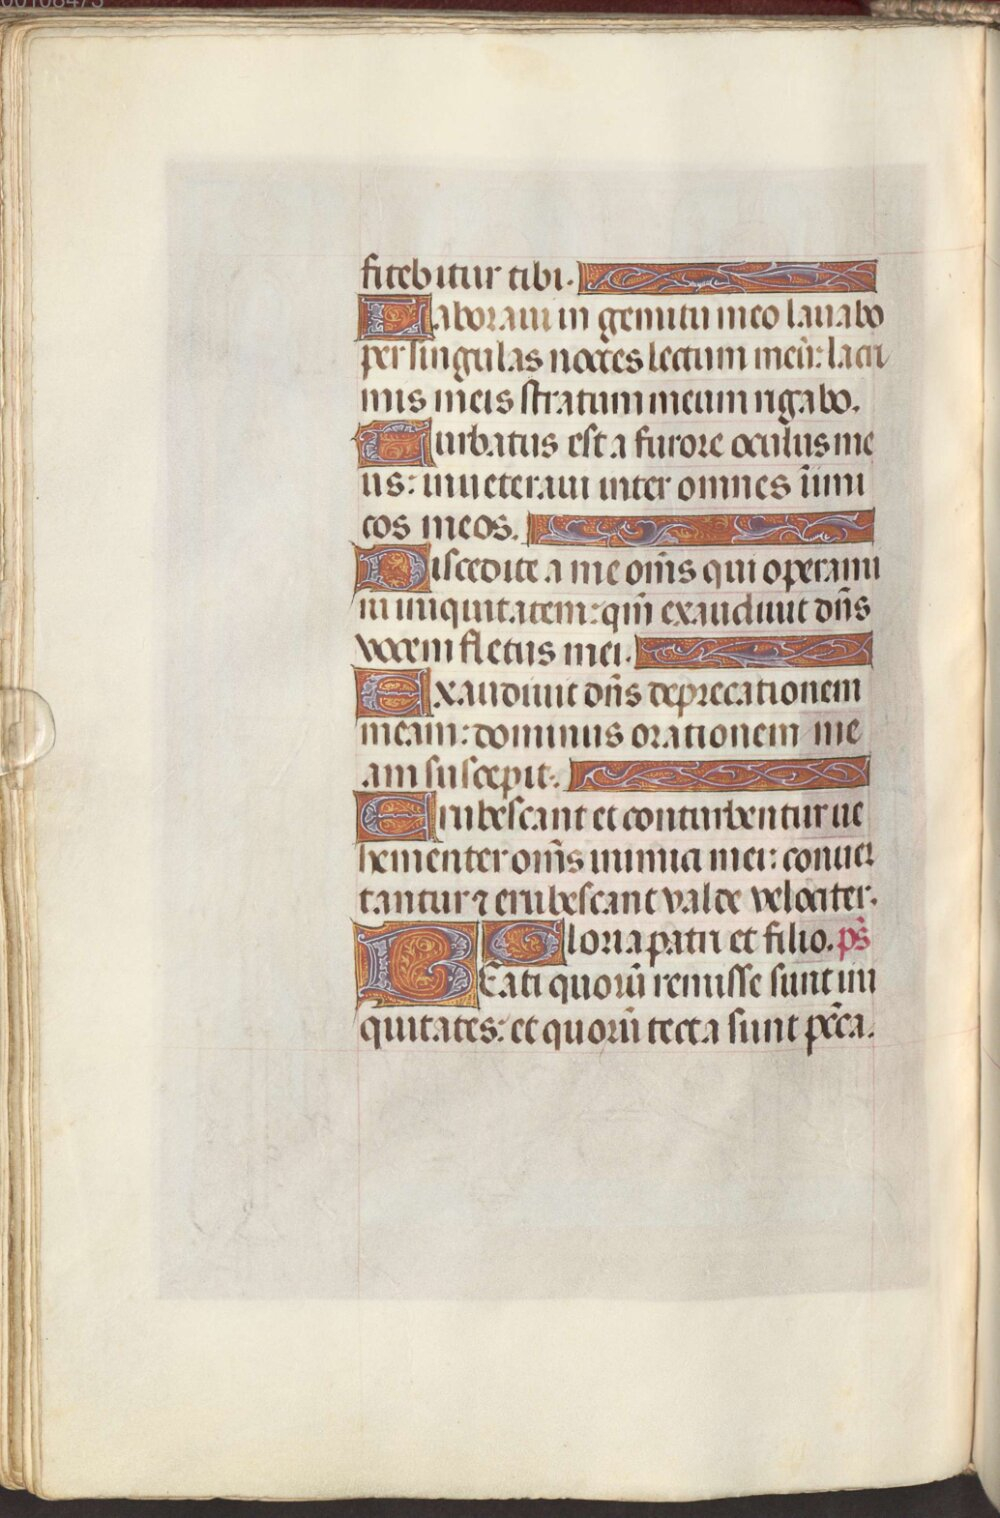 00108473
fitebitur tibi.
Laboraui in gemitu meo lauabo
per singulas noctes lectum meū: lacri
mis meis stratum meum rigabo.
Turbatus est a furore oculus me
us: inueteraui inter omnes īimi
cos meos.
Discedite a me om̄s qui operami
ni iniquitatem: qm̄ exaudiuit dn̄s
vocem fletus mei.
Exaudiuit dn̄s deprecationem
meam: dominus orationem me
am suscepit.
Erubescant et conturbentur ue
hementer om̄s inimici mei: conuer
tantur ⁊ erubescant valde velociter.
Gloria patri et filio. ps̄
BEati quorū remisse sunt ini
quitates: et quorū tecta sunt pc̄ca.